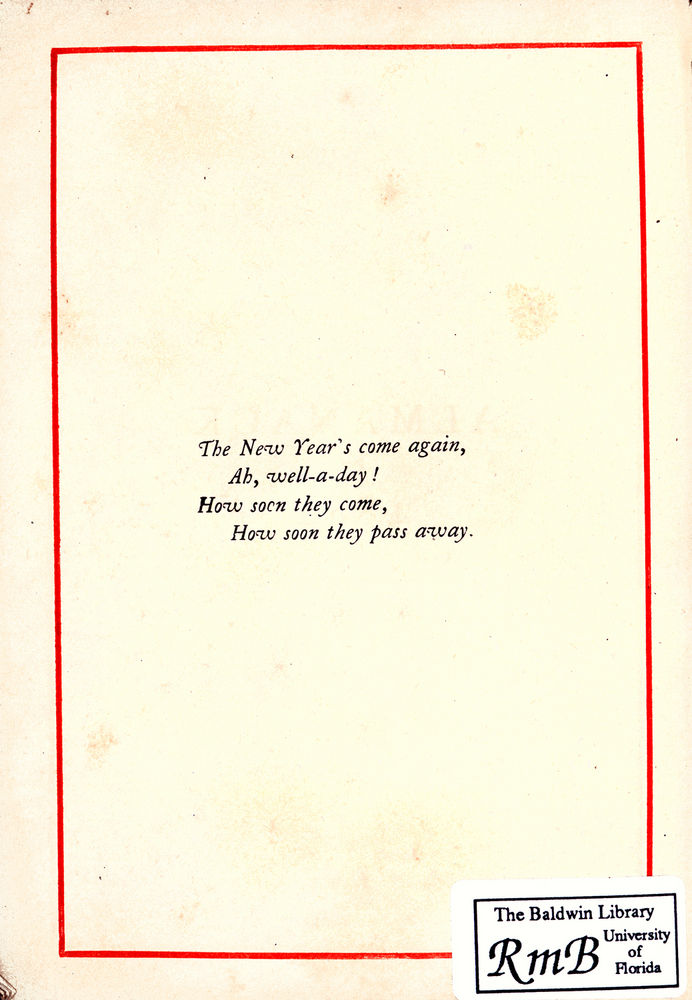 The New Year's come again,
Ah, well-a-day!
How soon they come,
How soon they pass away.
The Baldwin Library
RmB
University
of
Florida